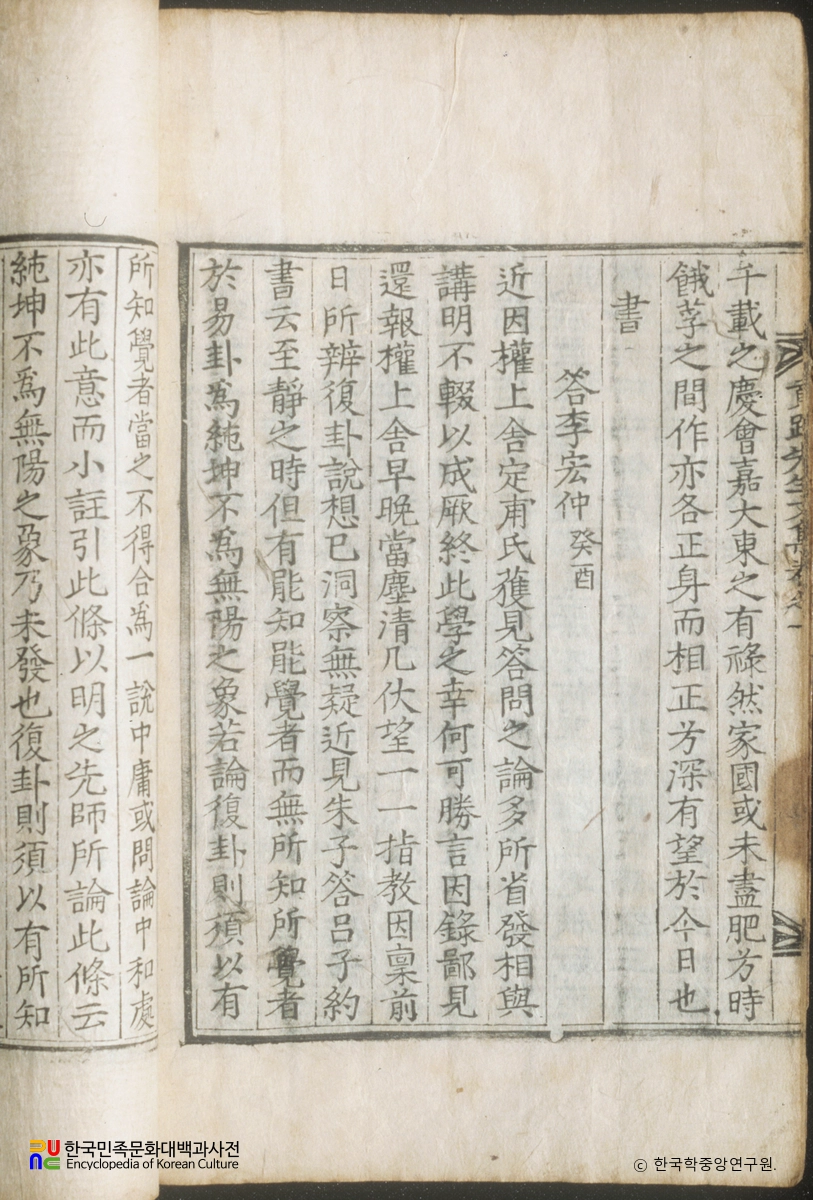 千載之慶會嘉大東之有祿然家國或未盡肥方時
餓莩之間作亦各正身而相正方深有望於今日也
書
答李宏仲 癸酉
近因權上舍定甫氏獲見答問之論多所省發相與
講明不輟以成厥終此學之幸何可勝言因錄鄙見
還報權上舍早晚當塵清几伏望一一指教因稟前
日所辨復卦說想已洞察無疑近見朱子答呂子約
書云至靜之時但有能知能覺者而無所知所覺者
於易卦爲純坤不爲無陽之象若論復卦則須以有
所知覺者當之不得合爲一說中庸或問論中和處
亦有此意而小註引此條以明之先師所論此條云
純坤不爲無陽之象乃未發也復卦則須以有所知
한국민족문화대백과사전
Encyclopedia of Korean Culture
© 한국학중앙연구원.